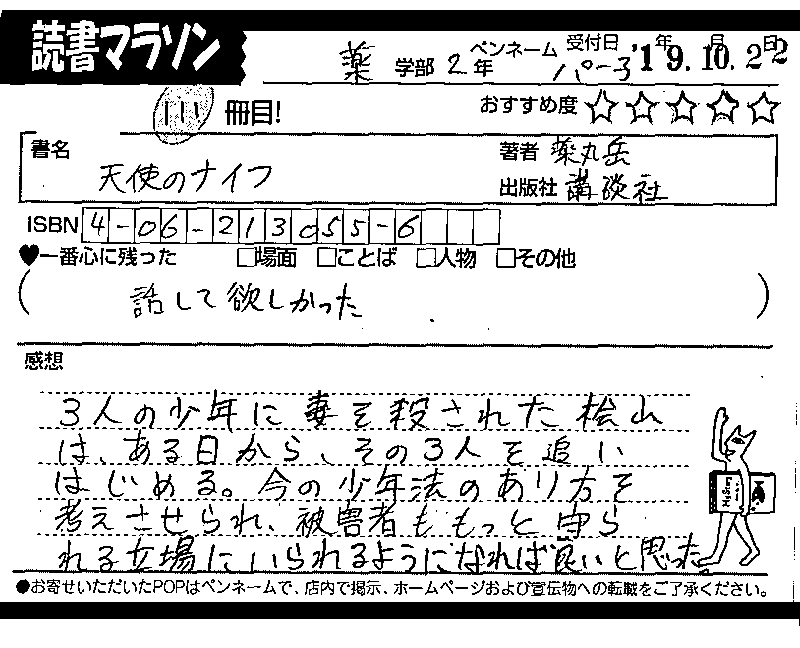 読書マラソン
薬 学部 2年 ペンネーム パー子 受付日 '19年.10月.22日
111 冊目! おすすめ度 ☆☆☆☆☆
書名 天使のナイフ
著者 薬丸岳
出版社 講談社
ISBN 4-06-213055-6
♥一番心に残った □場面 □ことば □人物 □その他
( 話して欲しかった )
感想
3人の少年に妻を殺された桧山
は、ある日から、その3人を追い
はじめる。今の少年法のあり方を
考えさせられ、被害者ももっと守ら
れる立場にいられるようになれば良いと思った。
●お寄せいただいたPOPはペンネームで、店内で掲示、ホームページおよび宣伝物への転載をご了承ください。